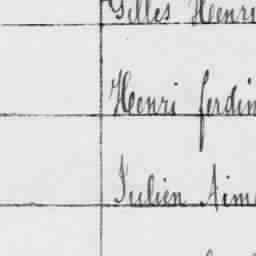 Gilles Henri
Henri ferdin
Julien Aimé